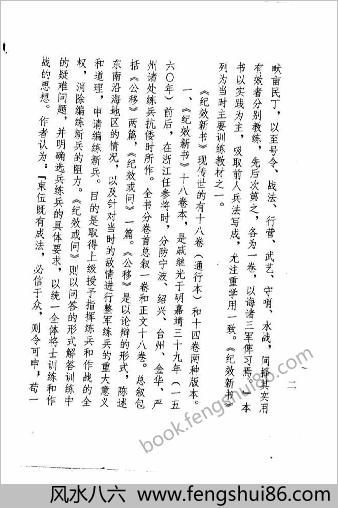 畎亩民丁,以至号令、战法、行营、武艺、守哨、水战,间择其实用
有效者分别教练,先后次第之,各为一卷,以诲诸三军俾习焉”。本
书以实践为主,吸取前人兵法写成,尤注重学用一致。《纪效新书》
列为当时主要训练教材之一。
《纪效新书》现传世的有十八卷(通行本)和十四卷两种版本。
一、《纪效新书》十八卷本,是戚继光于明嘉靖三十九年(一五
六〇年)前后,在浙江任参将时,分防宁波、绍兴、台州、金华、严
州诸处练兵抗倭时所作。全书分卷首总叙一卷和正文十八卷。总叙包
括《公移》两篇,《纪效或问》一篇。《公移》是以论辩的形式,陈述
东南沿海地区的情况,以及针对当时的敌情进行整军练兵的重大意义
和道理,申请编练新兵。目的是取得上级授予指挥练兵和作战的全
权,消除编练新兵的阻力。《纪效或问》则以问答的形式解答训练中
的疑难问题,并明确选兵练兵的具体要求,以统一全体将士训练和作
战的思想。作者认为:“束伍既有成法,必信于众,则令可申,苟一
二
book.fengshui86.com
风水八六 www.fengshui86.com